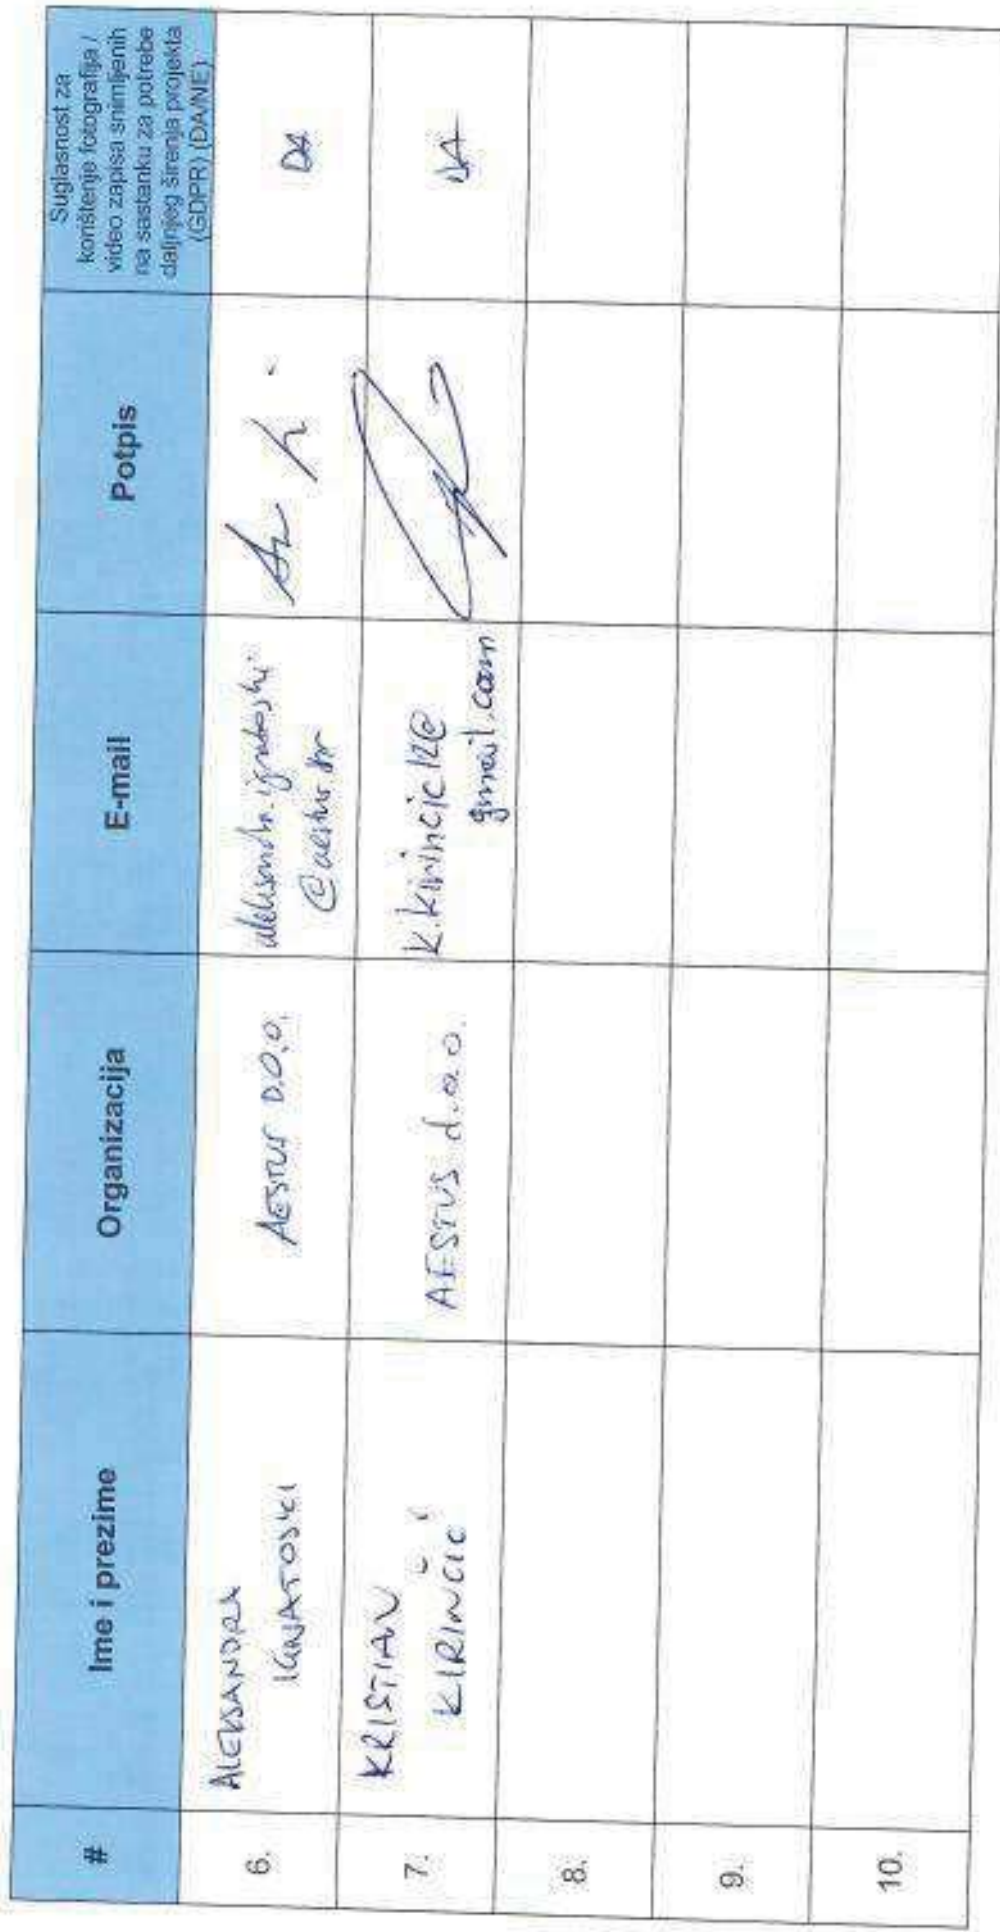 #
Ime i prezime
Organizacija
E-mail
Potpis
Suglasnost za
korištenje fotografija /
video zapisa snimljenih
na sastanku za potrebe
daljnjeg širenja projekta
(GDPR) (DA/NE)
6.
ALEKSANDRA
IGNATOSKI
AESTUS D.O.O.
aleksandra.ignatoski
@aestus.hr
DA
7.
KRISTIAN
KIRINČIĆ
AESTUS d.o.o.
k.kirincic12@
gmail.com
DA
8.
9.
10.